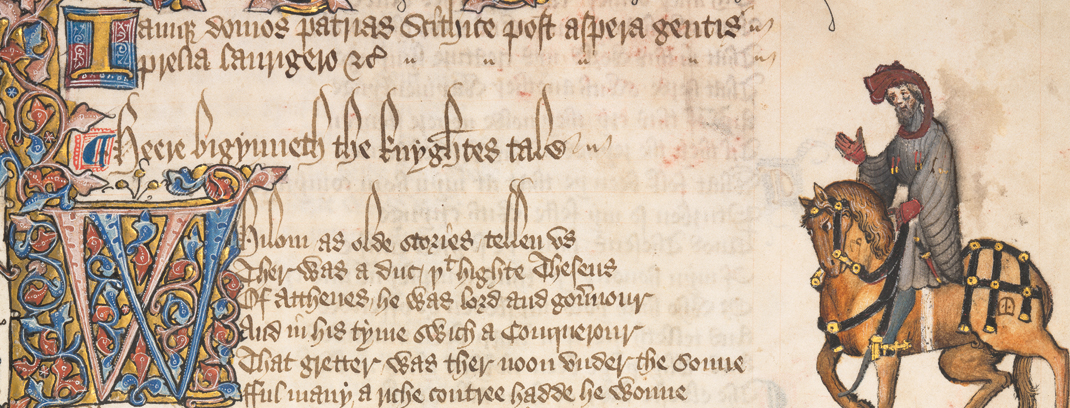 Iamqꝫ domos patrias Scithice post aspera gentis
prelia laurigero ⁊c
¶ Heere bigynneth the knyghtes tale
Whilom as olde stories tellen vs
Ther was a duc þͭ highte Theseus
Of Atthenes he was lord and gou̾nour
And in his tyme swich a Conquerour
That gretter was ther noon vnder the sonne
fful many a riche contree hadde he wonne
M